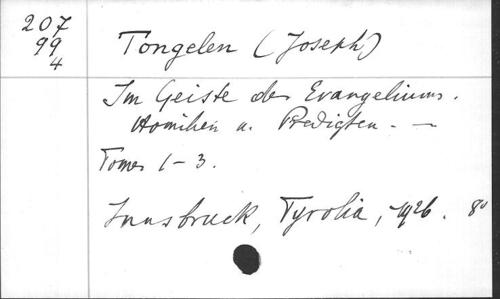 207
99
4
Tongelen (Joseph)
Im Geiste des Evangeliums.
Homilien u. Predigten. —
Tomes 1-3.
Innsbruck, Tyrolia, 1926. 8°